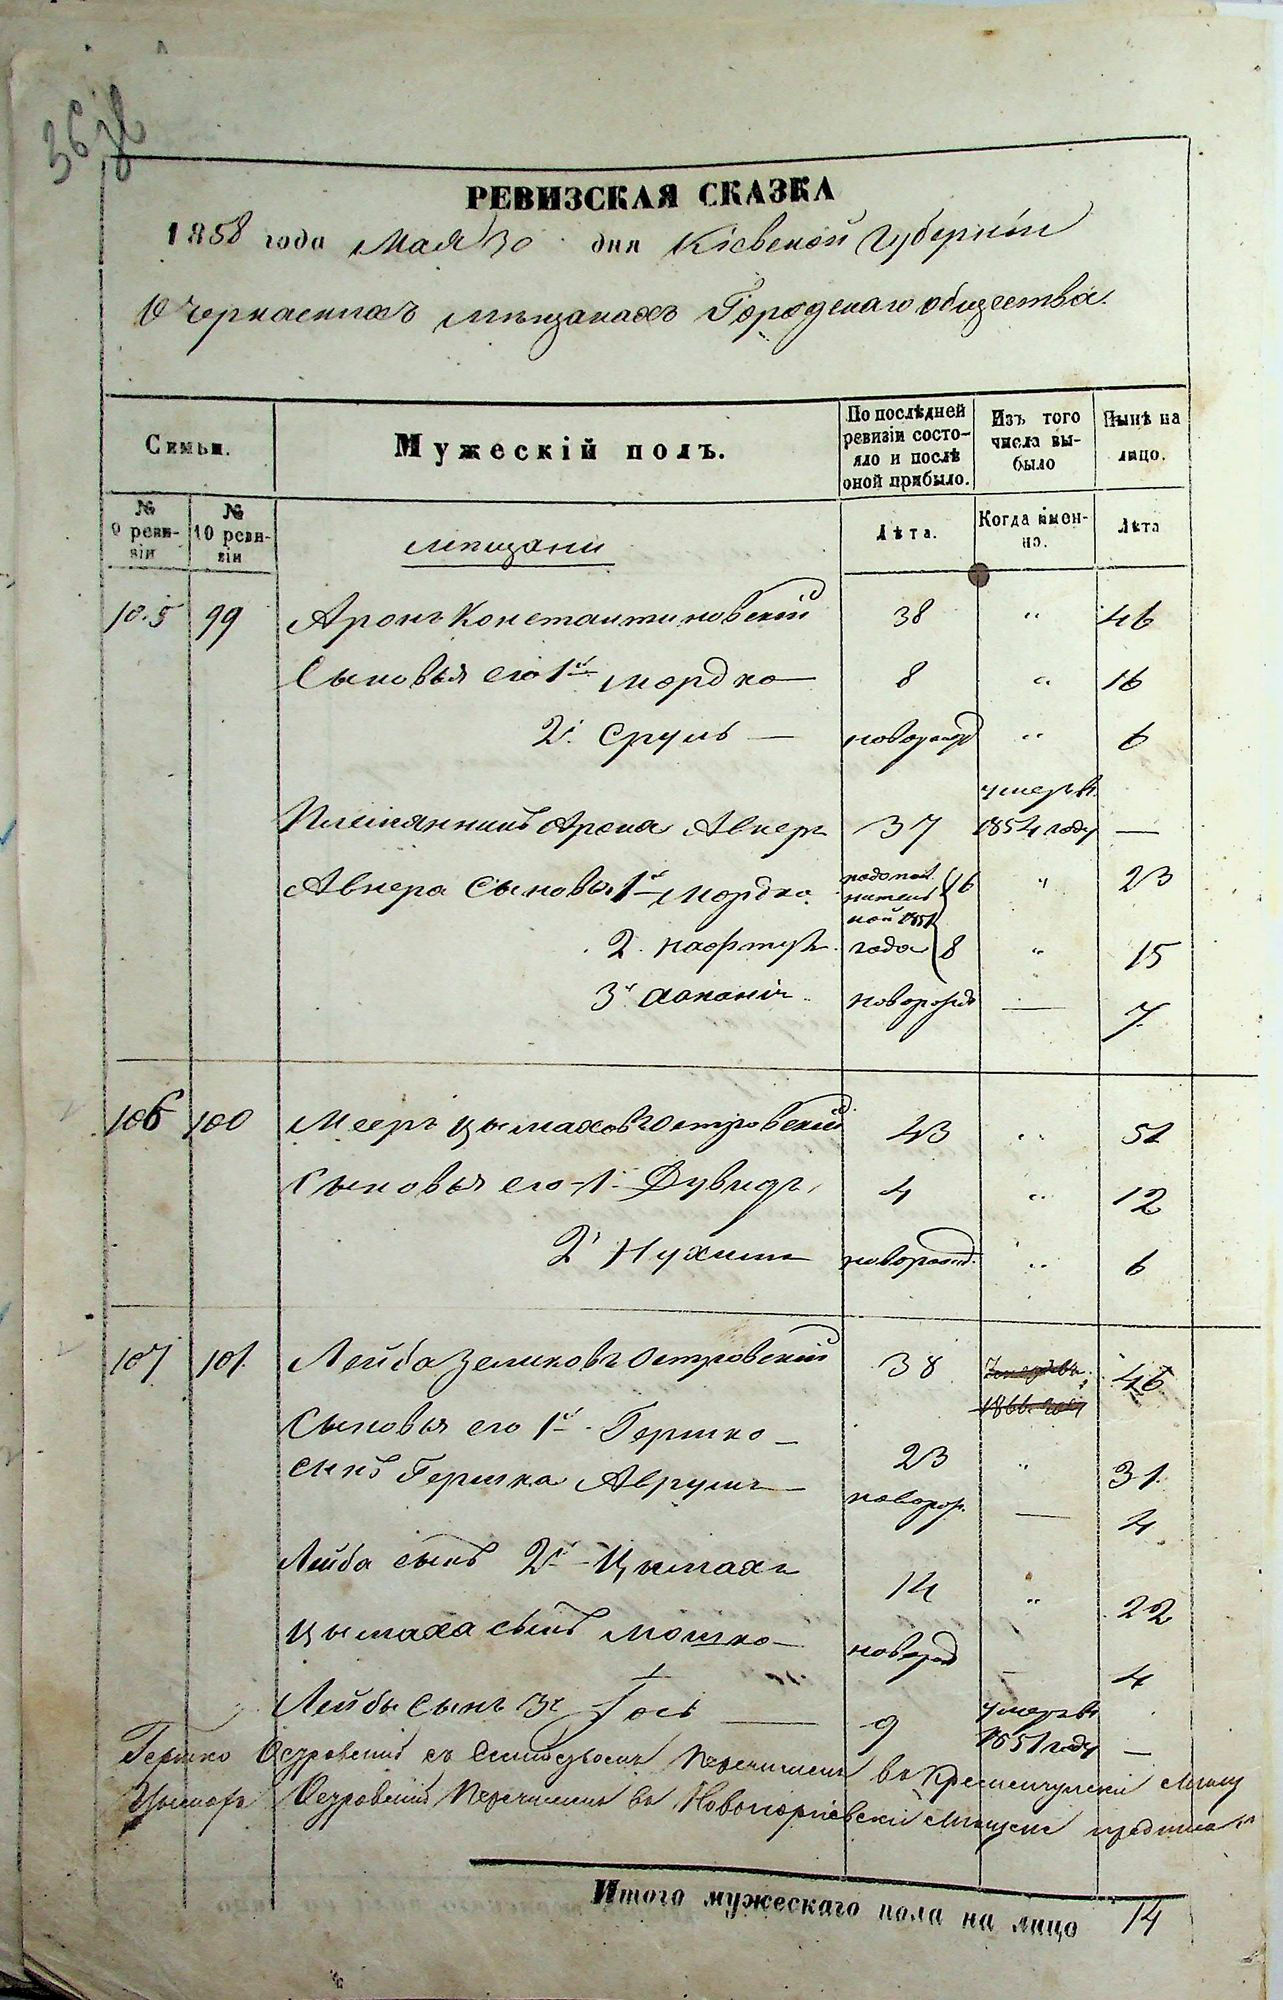 РЕВИЗСКАЯ СКАЗКА
1858 года Мая 30 дня Кіевской Губерніи
О Черкаскихъ мѣщанахъ Городскаго общества.
Семьи.
Мужескій полъ.
По послѣдней ревизіи состояло и послѣ оной прибыло.
Изъ того числа выбыло
Нынѣ на лицо.
№ 9 ревизіи
№ 10 ревизіи
мѣщани
Лѣта.
Когда именно.
Лѣта
105 99 Аронъ Константиновскій 38 " 46
Сыновья его 1й мордко 8 " 16
2й Сруль — новорожд " 6
Племянникъ Арона Авнеръ 37 умеръ въ 1854 году —
Авнера Сыновья 1й Мордко 16 " 23
1851 года
2. нафтула 8 " 15
3й новорожд — 7
106 100 Мееръ Цымаховъ Островскій 43 " 51
Сыновья его 1 Дувидъ 4 " 12
2й Нухимъ новорожд. " 6
107 101. Лейба Зеликовъ Островскій 38 46
Сыновья его 1й Гершко — 23 " 31
сынъ Гершка Аврумъ — новорож. — 4
Лейба сынъ 2й Цымахъ 14 " 22
Цымаха сынъ Мошко — новорожд — 4
Лейбы Сынъ 3й Іось — 9 умеръ въ 1851 году —
Гершко Островскій съ перечисленъ въ Кременчугскіе
Цымахъ Островскій перечисленъ въ Новогеоргіевскіе мѣщане
Итого мужескаго пола на лицо 14